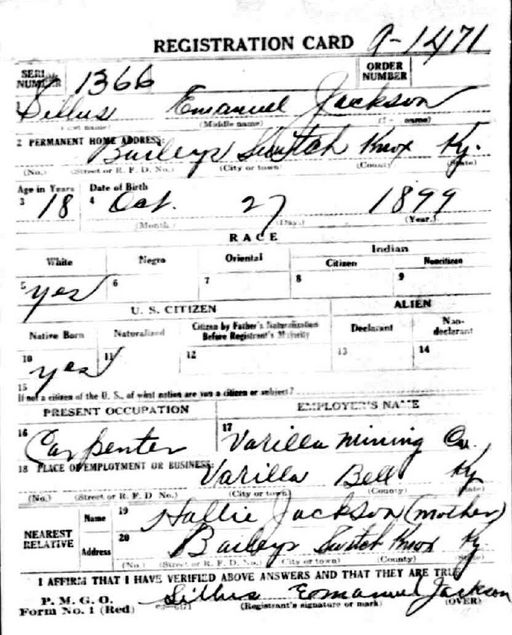 REGISTRATION CARD 9-1471
SERIAL NUMBER 1366 ORDER NUMBER
1 Sillus Emanuel Jackson
(First name) (Middle name) (Last name)
2 PERMANENT HOME ADDRESS: Baileys Switch Knox Ky.
(No.) (Street or R. F. D. No.) (City or town) (County) (State)
Age in Years Date of Birth
3 18 4 Oct. 27 1899
(Month) (Day) (Year.)
RACE
White Negro Oriental Indian
Citizen Noncitizen
5 yes 6 7 8 9
U. S. CITIZEN ALIEN
Native Born Naturalized Citizen by Father's Naturalization Before Registrant's Majority Declarant Non-declarant
10 yes 11 12 13 14
15 If not a citizen of the U. S., of what nation are you a citizen or subject?
PRESENT OCCUPATION EMPLOYER'S NAME
16 Carpenter 17 Varilla Mining Co.
18 PLACE OF EMPLOYMENT OR BUSINESS: Varilla Bell Ky
(No.) (Street or R. F. D. No.) (City or town) (County) (State)
NEAREST RELATIVE Name 19 Hallie Jackson (mother)
Address 20 Baileys Switch Knox Ky
(No.) (Street or R. F. D. No.) (City or town) (County) (State)
I AFFIRM THAT I HAVE VERIFIED ABOVE ANSWERS AND THAT THEY ARE TRUE
P. M. G. O.
Form No. 1 (Red) Sillus Emanuel Jackson
(Registrant's signature or mark) (OVER)